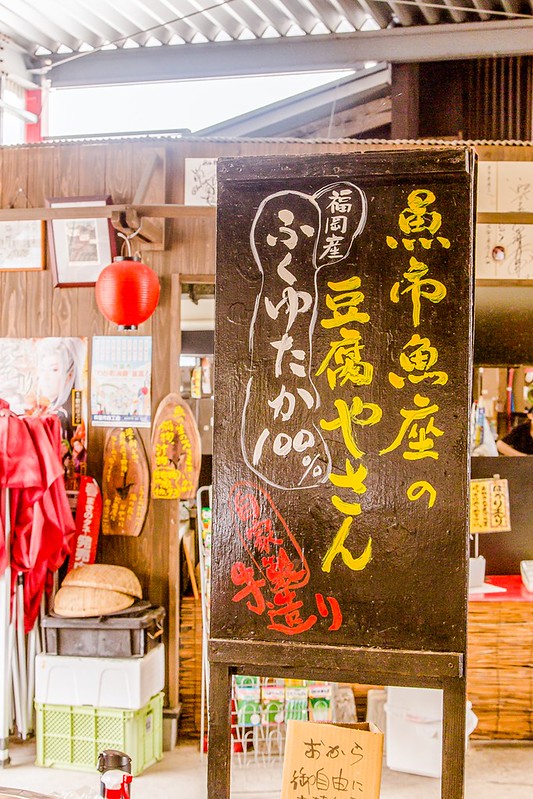 魚市魚座の
豆腐やさん
福岡産
ふくゆたか100%
自家製
手造り
おから
御自由に